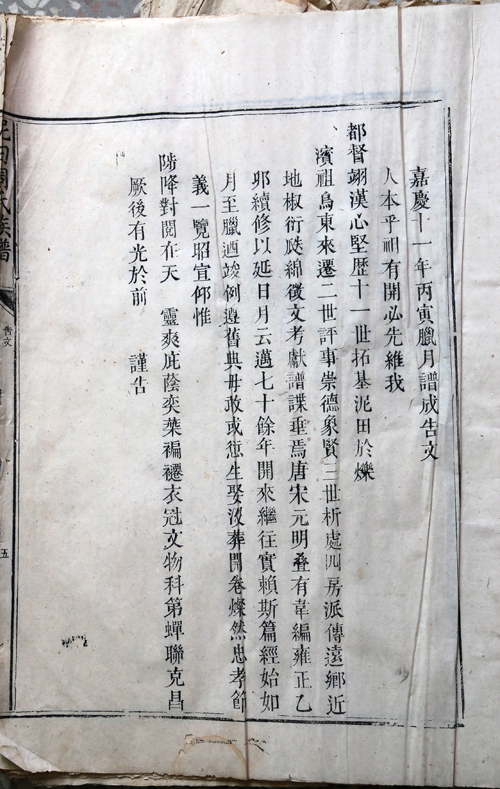 嘉慶十一年丙寅臘月譜成告文
人本乎祖有開必先維我
都督翊漢心堅歷十一世拓基泥田於爍
濱祖烏東來遷二世評事崇德象賢三世析處四房派傳遠鄉近
地椒衍瓞綿徵文考獻譜諜垂焉唐宋元明叠有韋編雍正乙
夘續修以延日月云邁七十餘年開來繼往實賴斯篇經始如
月至臘迺竣例遵舊典毋敢或愆生娶沒葬開卷燦然忠孝節
義一覽昭宣仰惟
陟降對閱在天　靈爽庇蔭奕葉褊褼衣冠文物科第蟬聯克昌
厥後有光於前　謹告
泥田周氏族譜
告文
五